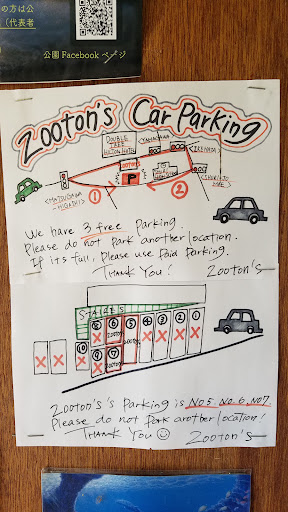 の方は公
(代表者
公園 Facebook ページ
Zooton's Car Parking
DOUBLE
TREE
HILTON HOTEL
ZOOTON'S
P
<MATSUGAWA
HIGASHI>
① ②
We have 3 free Parking.
Please do not Park another location.
If its full, Please use Paid Parking.
THANK YOU! Zooton's
STAIRS
⑧ ⑥ ⑤ ④ ③ ② ①
⑩ ⑨ ⑦
Zooton's's Parking is No5. No.6. No7.
Please do not Park another location!
THANK YOU ☺ Zooton's